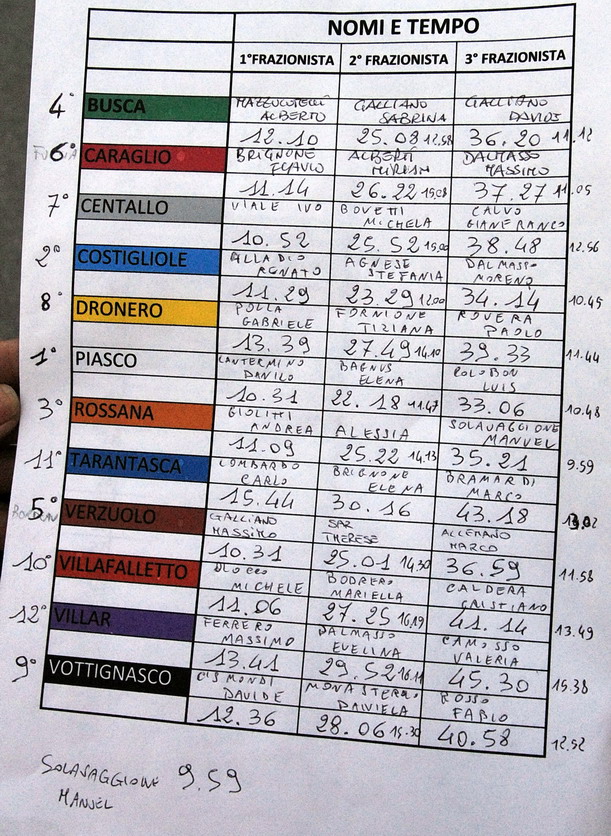 NOMI E TEMPO
1°FRAZIONISTA 2° FRAZIONISTA 3° FRAZIONISTA
4° BUSCA GALLIANO GALLIANO
ALBERTO SABRINA
12.10 25.08 12.58 36.20 11.12
6° CARAGLIO BRIGNONE ALBERTI DALMASSO
FLAVIO MIRIAM MASSIMO
11.14 26.22 15.08 37.27 11.05
7° CENTALLO VIALE IVO BOVETTI CALVO
MICHELA GIANFRANCO
10.52 25.52 15.00 38.48 12.56
2° COSTIGLIOLE ALLADIO AGNESE DALMASSO
RENATO STEFANIA MORENO
11.29 23.29 12.00 34.14 10.45
8° DRONERO POLLA FORNIONE ROVERA
GABRIELE TIZIANA PAOLO
13.39 27.49 14.10 39.33 11.44
1° PIASCO LANTERMINO BAGNUS
DANILO ELENA LUIS
10.31 22.18 11.47 33.06 10.48
3° ROSSANA GIOLITTI SOLAVAGGIONE
ANDREA ALESSIA MANUEL
11.09 25.22 14.13 35.21 9.59
11° TARANTASCA LOMBARDO BRIGNONE BRAMARDI
CARLO ELENA MARCO
15.44 30.16 43.18
5° VERZUOLO GALLIANO SAR ALLEMANO
MASSIMO THERESE MARCO
10.31 25.01 14.30 36.59 11.58
10° VILLAFALLETTO BODRERO CALDERA
MICHELE MARIELLA CRISTIANO
11.06 27.25 16.19 41.14 13.49
12° VILLAR FERRERO DALMASSO CAMOSSO
MASSIMO EVELINA VALERIA
13.41 29.52 16.11 45.30 15.38
9° VOTTIGNASCO MONASTEROLO ROSSO
DAVIDE DANIELA FABIO
12.36 28.06 15.30 40.58 12.52
SOLAVAGGIONE 9.59
MANUEL